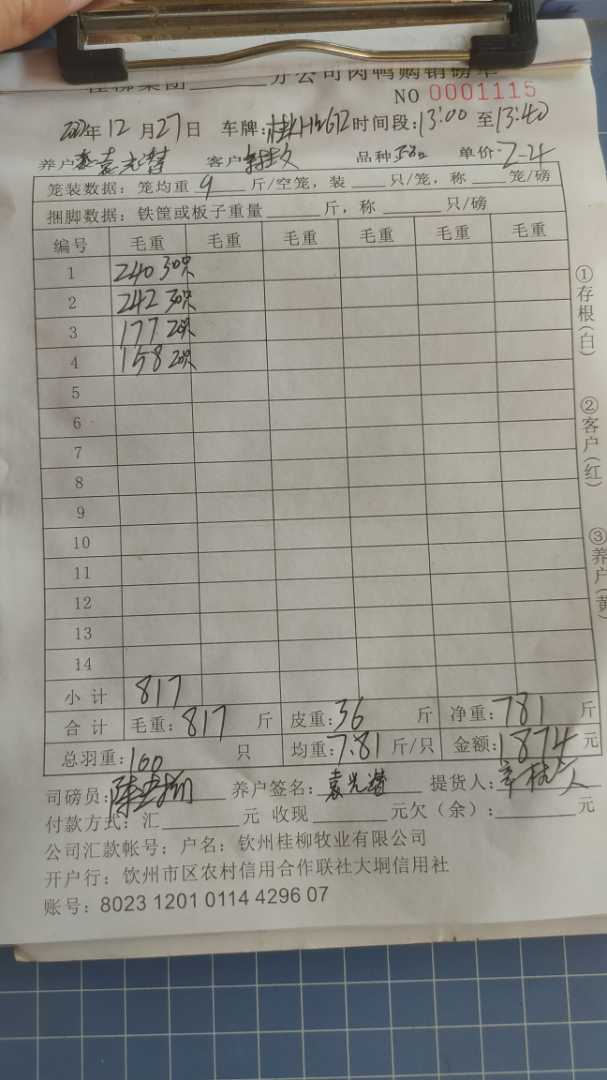 桂柳集团______分公司肉鸭购销磅单
NO 0001115
年 12 月 27 日 车牌: 时间段: 13:00 至 13:40
养户: 袁光潜 客户 品种 单价: 2.4
笼装数据: 笼均重 9 斤/空笼, 装____只/笼, 称____笼/磅
捆脚数据: 铁筐或板子重量______斤, 称______只/磅
编号 毛重 毛重 毛重 毛重 毛重 毛重
1 240 30只
2 242 30只
3 177 20只
4 158 20只
5
6
7
8
9
10
11
12
13
14
小计 817
合计 毛重: 817 斤 皮重: 36 斤 净重: 781 斤
总羽重: 100 只 均重: 7.81 斤/只 金额: 1874 元
司磅员: 养户签名: 袁光潜 提货人:
付款方式: 汇______元 收现______元欠（余）: ______元
公司汇款帐号: 户名: 钦州桂柳牧业有限公司
开户行: 钦州市区农村信用合作联社大垌信用社
账号: 8023 1201 0114 4296 07
①存根(白)
②客户(红)
③养户(黄)